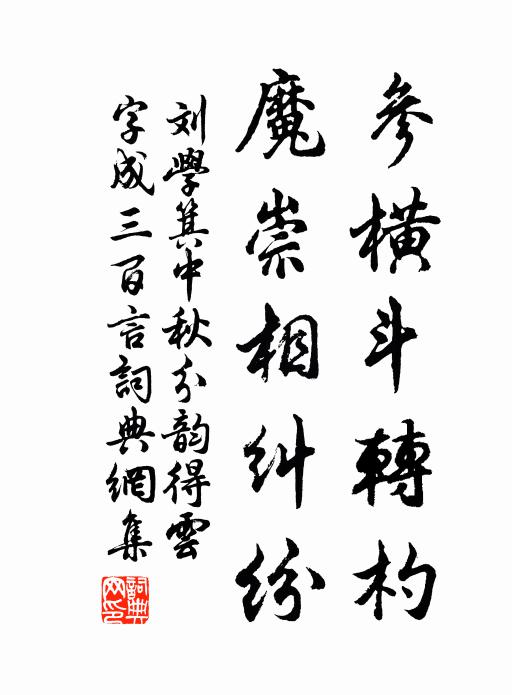 參橫斗轉杓
魔祟相糾紛
刘學箕中秋分韵得雲
字成三百言詞典網集
詞典網印